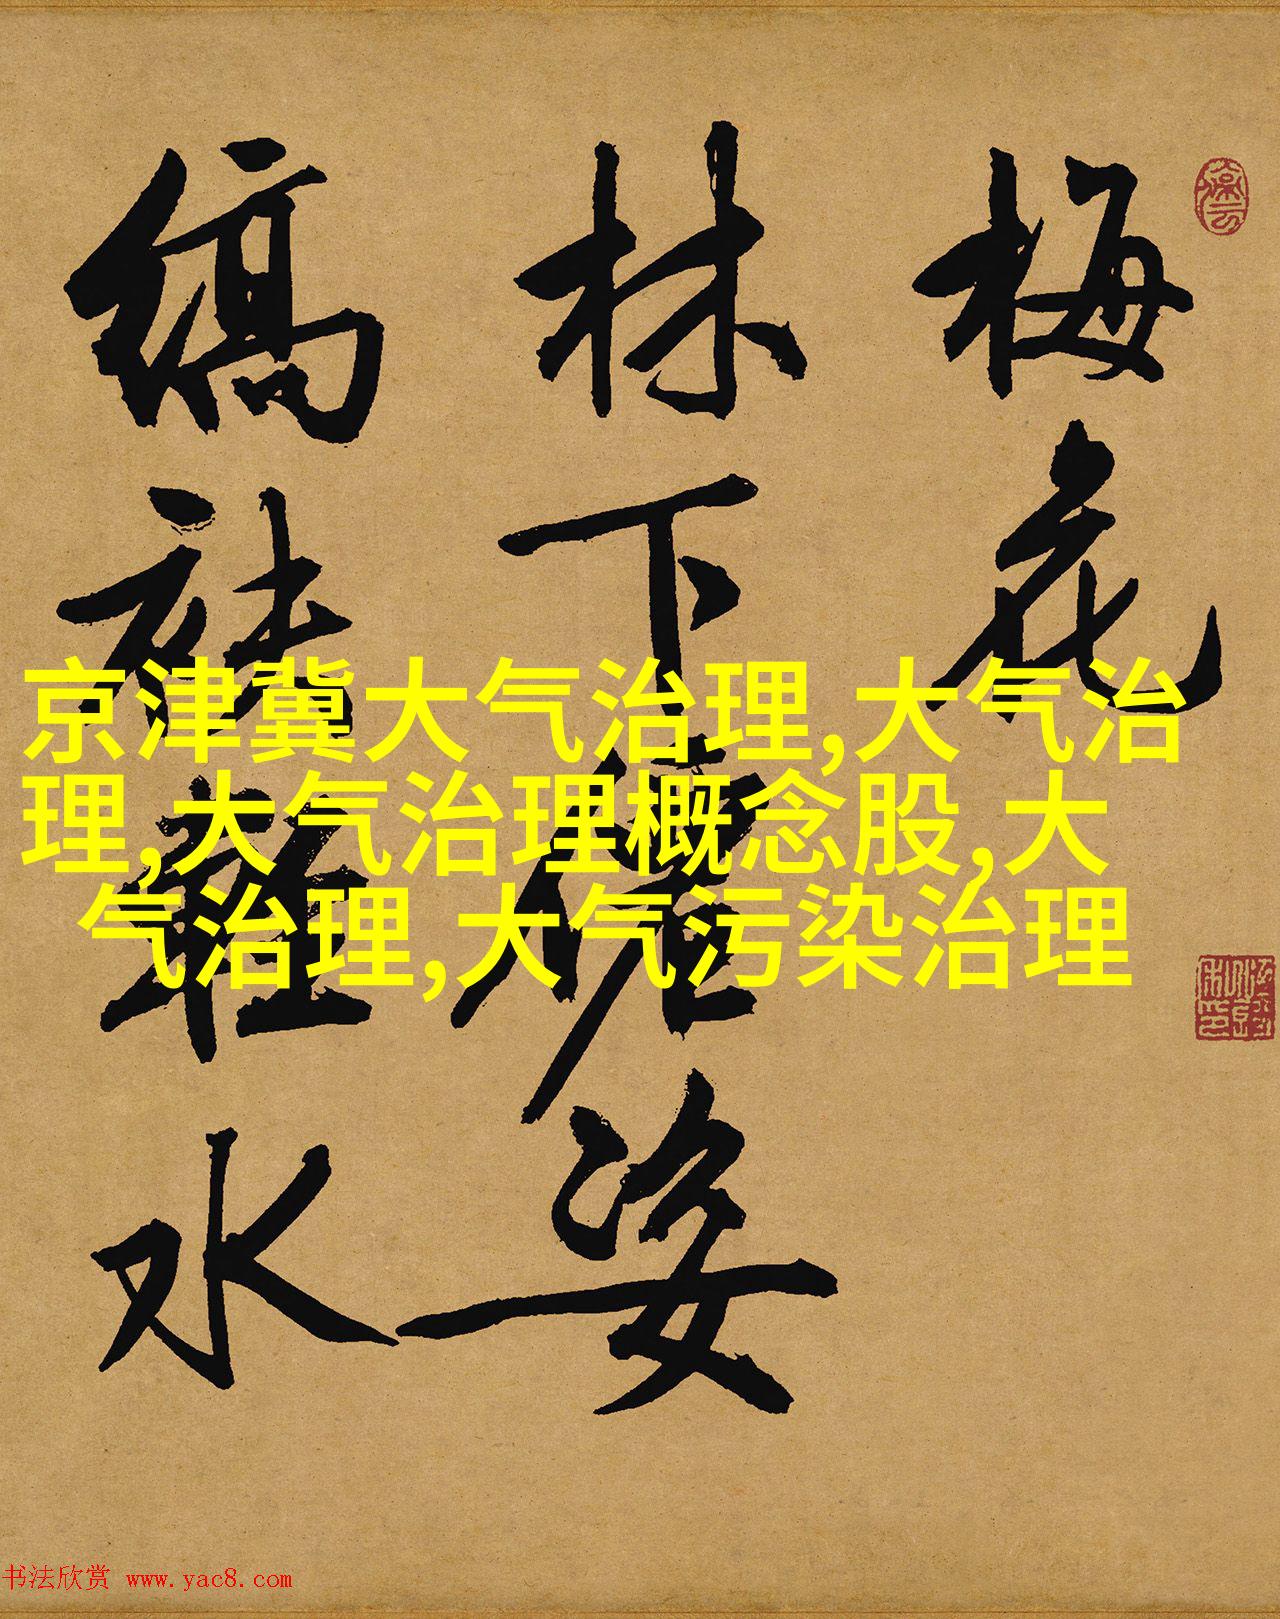 梅花
林下仙姿
缟袂轻水
京津冀大气治理,大气治
理,大气治理概念股,大
气治理,大气污染治理
书法欣赏 www.yac8.com